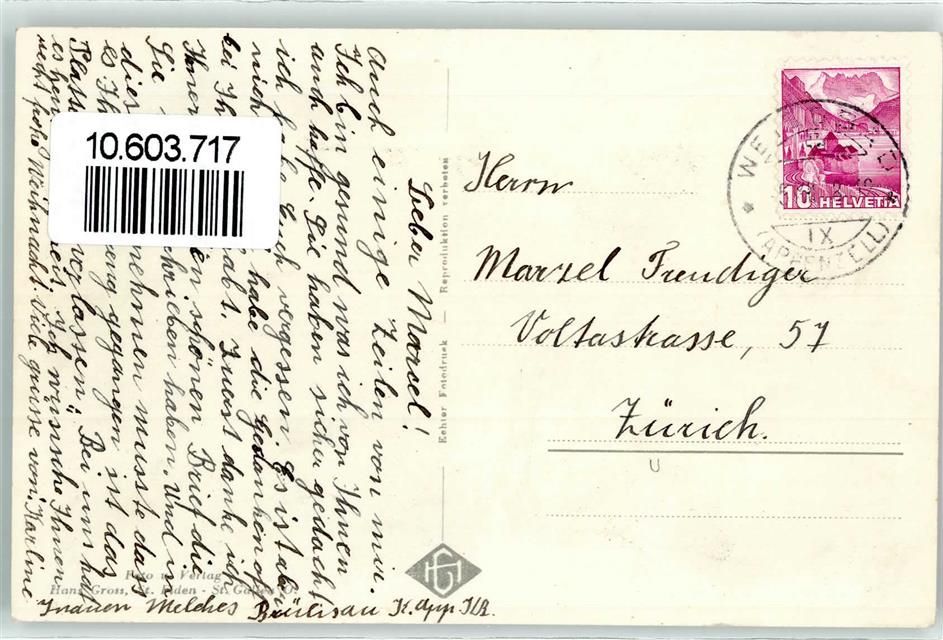 Lieber Marcel!
Auch einige Zeilen von mir.
Ich bin gesund was ich von Ihnen
auch hoffe. Sie haben sicher gedacht
ich habe Euch vergessen. Es ist aber
nicht habe die Gedanken oft
bei Ih habt. Zuerst danke ich
Ihnen den schönen Brief die
Sie schrieben haben. Und in
dies nehmen musste dass
es Ih gegangen ist das
verlassen. Bei uns hat
es Ich wünsche Ihnen
recht frohe Weihnacht. Viele grüsse von Karline
Inauen Melches Brülisau K. App. I.R.
10.603.717
Echter Fotodruck — Reproduktion verboten
Foto u. Verlag
Hans Gross, St. Fiden - St. Gallen O.
HG
Herrn
Marzel Freudiger
Voltastrasse, 57
Zürich.
10 HELVETIA
IX
(APPENZELL)